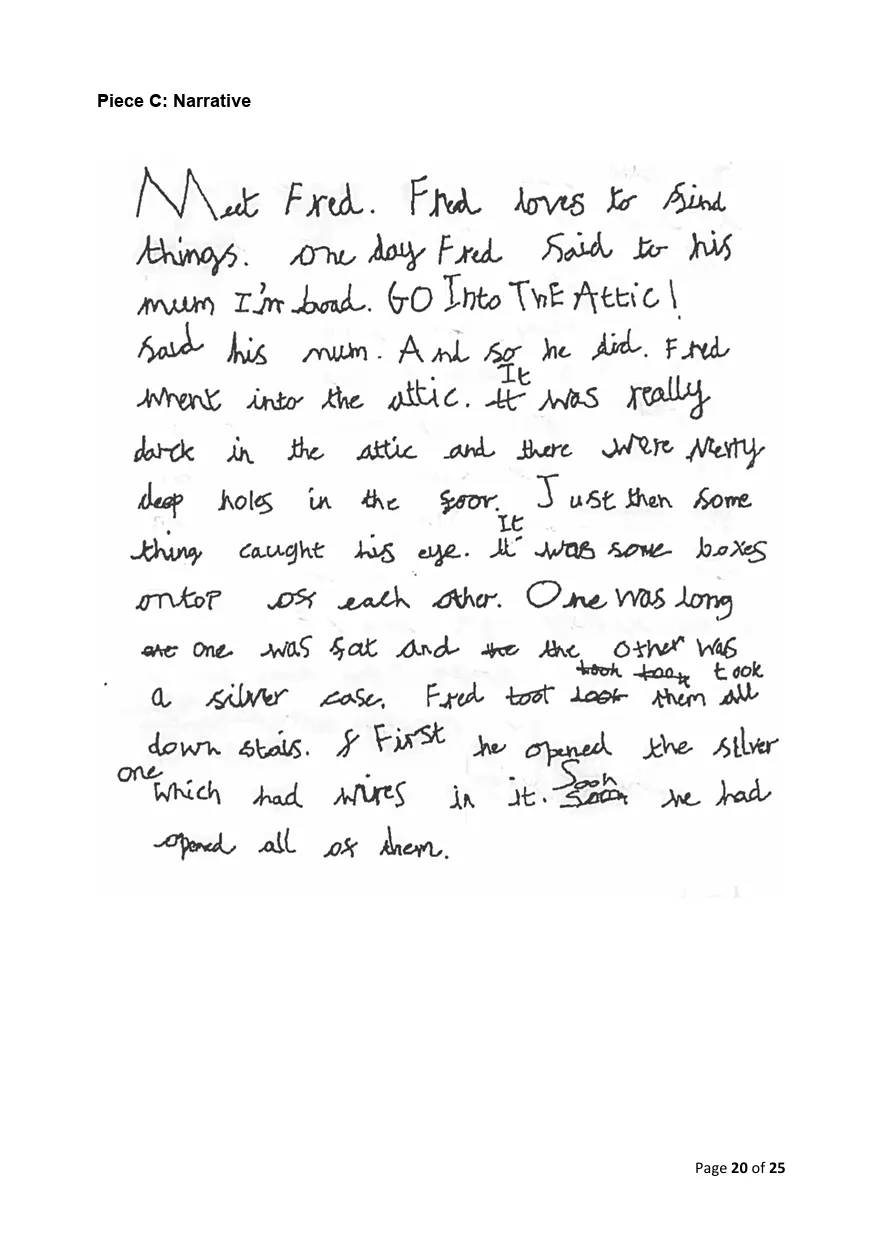 Piece C: Narrative
Meet Fred. Fred loves to find
things. one day Fred said to his
mum I'm boad. GO Into ThE Attic!
said his mum. And so he did. Fred
It
whent into the attic. It was really
darck in the attic and there were verry
deep holes in the foor. Just then some
It
thing caught his eye. it was some boxes
ontop of each other. One was long
one one was fat and the the other was
took took took
a silver case. Fred toot look them all
down stais. f First he opened the silver
one
which had wires in it. Soon he had
Soon
opened all of them.
Page 20 of 25